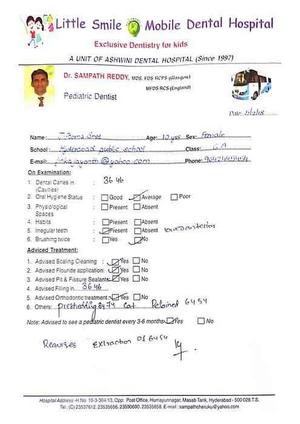 Little Smile Mobile Dental Hospital
Exclusive Dentistry for kids
A UNIT OF ASHWINI DENTAL HOSPITAL (Since 1997)
Dr. SAMPATH REDDY, MDS, FDS RCPS (Glasgow)
MFDS RCS (England)
Pediatric Dentist
Date:
Name: Age: 10 yrs Sex: Female
School: Hyderabad public school Class:
E-mail: @yahoo.com Phone:
On Examination:
1. Dental Caries in (Cavities) : 36 46
2. Oral Hygiene Status : Good Average Poor
3. Physiological Spaces : Present Absent
4. Habits : Present Absent
5. Irregular teeth : Present Absent
6. Brushing twice : Yes No
Advised Treatment:
1. Advised Scaling Cleaning : Yes No
2. Advised Flouride application: Yes No
3. Advised Pit & Fissure Sealants Yes No
4. Advised Filling in 36 46
5. Advised Orthodontic treatment: Yes No
6. Others: Retained 64 54
Note: Advised to see a pediatric dentist every 3-6 months Yes No
Requires Extraction of 64 54
Hospital Address: H.No. 10-3-304/13, Opp: Post Office, Humayunnagar, Masab Tank, Hyderabad - 500 028 T.S.